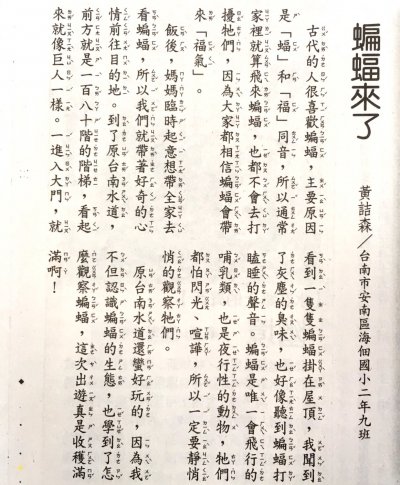 蝙蝠來了
黃詰森/台南市安南區海佃國小二年九班
古代的人很喜歡蝙蝠,主要原因
是「蝠」和「福」同音,所以通常
家裡就算飛來蝙蝠,也都不會去打
擾牠們,因為大家都相信蝙蝠會帶
來「福氣」。
飯後,媽媽臨時起意想帶全家去
看蝙蝠,所以我們就帶著好奇的心
情前往目的地。到了原台南水道,
前方就是一百八十階的階梯,看起
來就像巨人一樣。一進入大門,就
看到一隻隻蝙蝠掛在屋頂,我聞到
了灰塵的臭味,也好像聽到蝙蝠打
瞌睡的聲音。蝙蝠是唯一會飛行的
哺乳類,也是夜行性的動物,牠們
都怕閃光、喧譁,所以一定要靜悄
悄的觀察牠們。
原台南水道還蠻好玩的,因為我
不但認識蝙蝠的生態,也學到了怎
麼觀察蝙蝠,這次出遊真是收穫滿
滿啊!